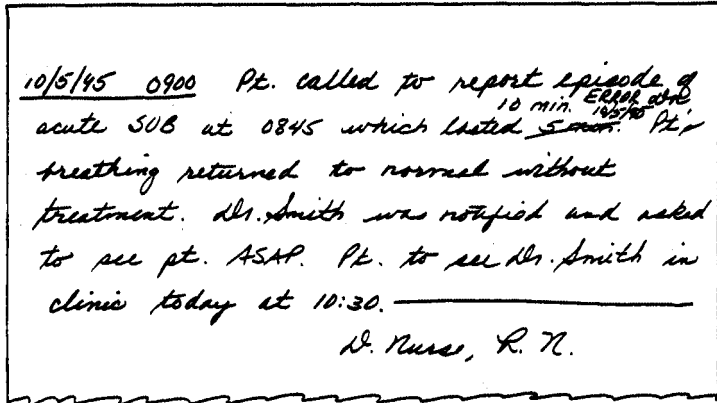 10/5/95 0900 Pt. called to report episode of
10 min. ERROR
10/5/95
acute SOB at 0845 which lasted 5 min. Pt's
breathing returned to normal without
treatment. Dr. Smith was notified and asked
to see pt. ASAP. Pt. to see Dr. Smith in
clinic today at 10:30.
D. Nurse, R. N.